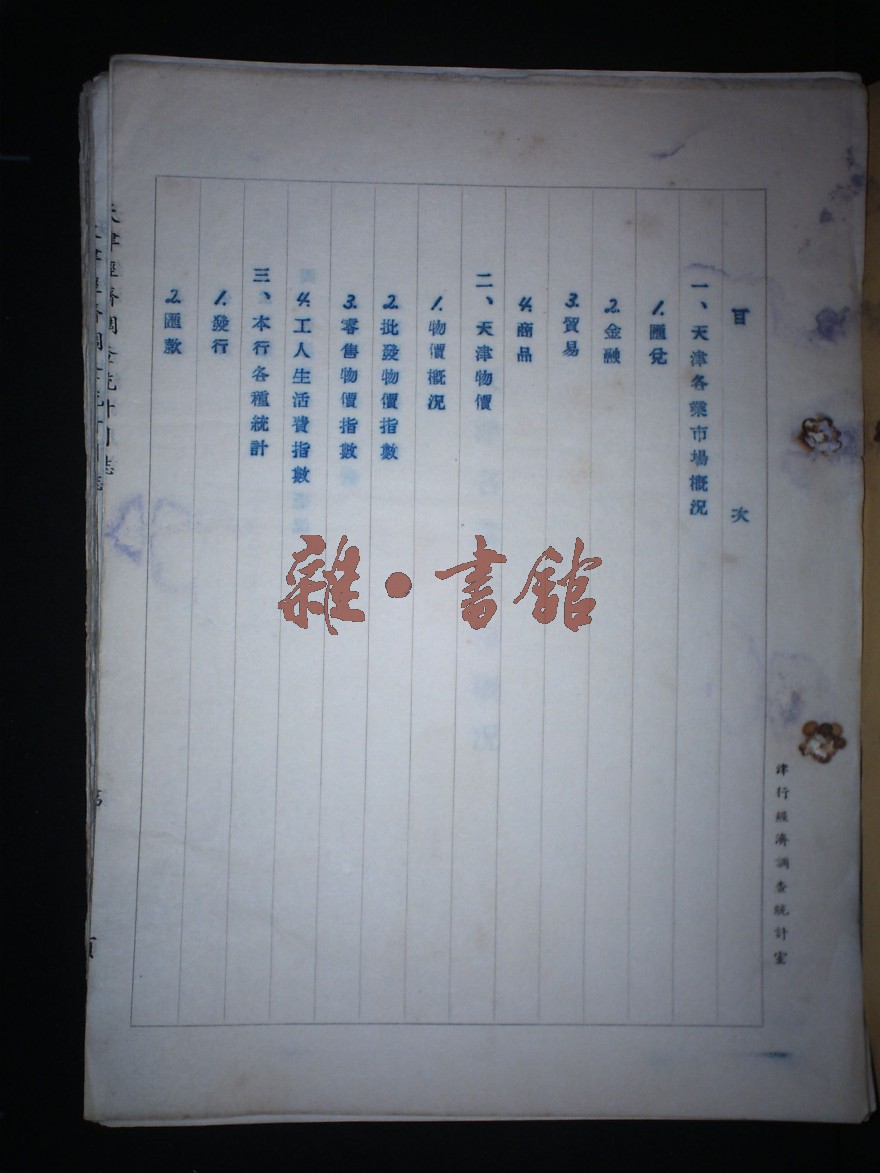 目 次
一、天津各業市場概況
1.匯兌
2.金融
3.貿易
4.商品
二、天津物價
1.物價概況
2.批發物價指數
3.零售物價指數
4.工人生活費指數
三、本行各種統計
1.發行
2.匯款
津行經濟調查統計室
雜·書館